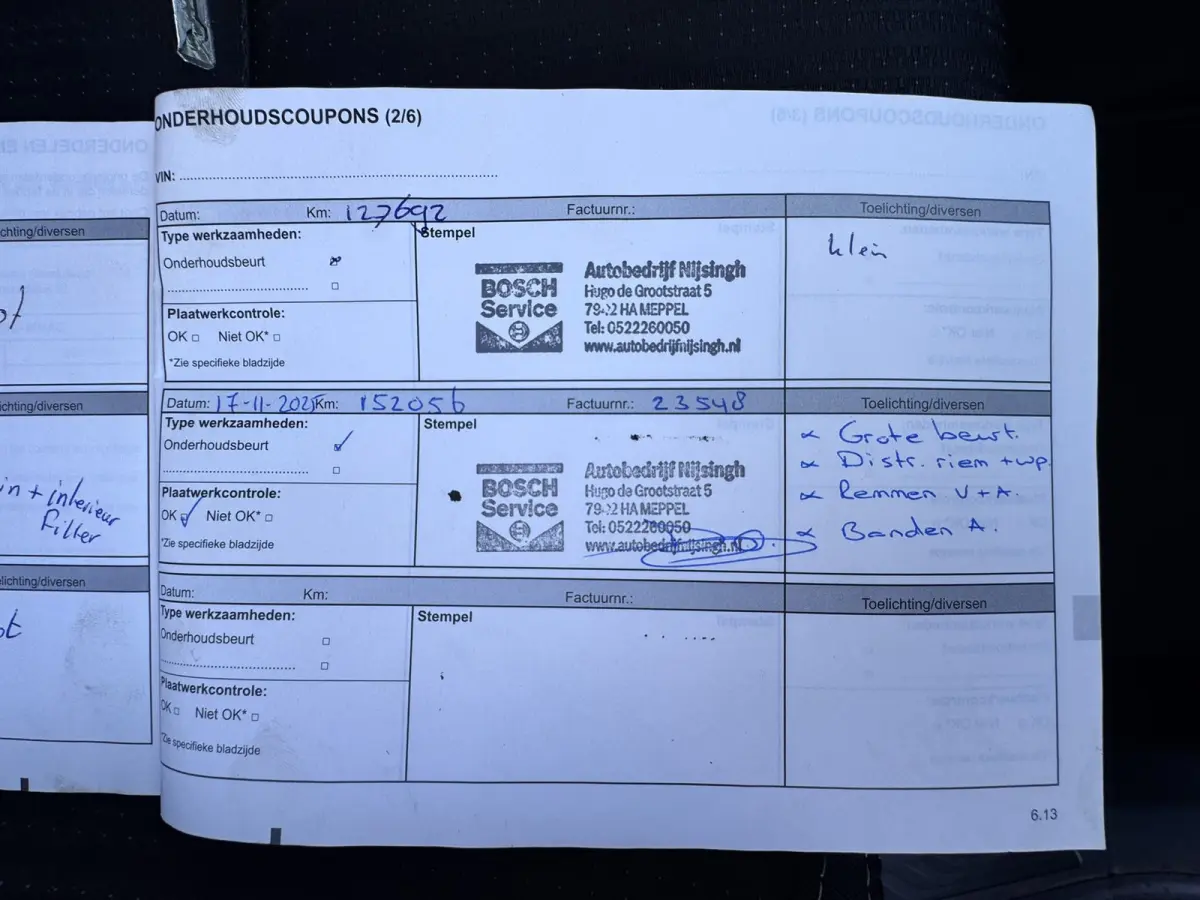 ONDERHOUDSCOUPONS (2/6)
VIN:
Datum: Km: 127692 Factuurnr.: Toelichting/diversen
Type werkzaamheden:
Onderhoudsbeurt
Plaatwerkcontrole:
OK Niet OK*
*Zie specifieke bladzijde
Stempel
BOSCH
Service
Autobedrijf Nijsingh
Hugo de Grootstraat 5
7942 HA MEPPEL
Tel: 0522260050
www.autobedrijfnijsingh.nl
klein
Datum: 17-11-2021 Km: 152056 Factuurnr.: 23548 Toelichting/diversen
Type werkzaamheden:
Onderhoudsbeurt
Plaatwerkcontrole:
OK Niet OK*
*Zie specifieke bladzijde
Stempel
BOSCH
Service
Autobedrijf Nijsingh
Hugo de Grootstraat 5
7942 HA MEPPEL
Tel: 0522260050
www.autobedrijfnijsingh.nl
Grote beurt.
Distr. riem + wp.
Remmen V + A.
Banden A.
Datum: Km: Factuurnr.: Toelichting/diversen
Type werkzaamheden:
Onderhoudsbeurt
Plaatwerkcontrole:
OK Niet OK*
*Zie specifieke bladzijde
Stempel
6.13
chting/diversen
chting/diversen
in + interieur
filter
lichting/diversen